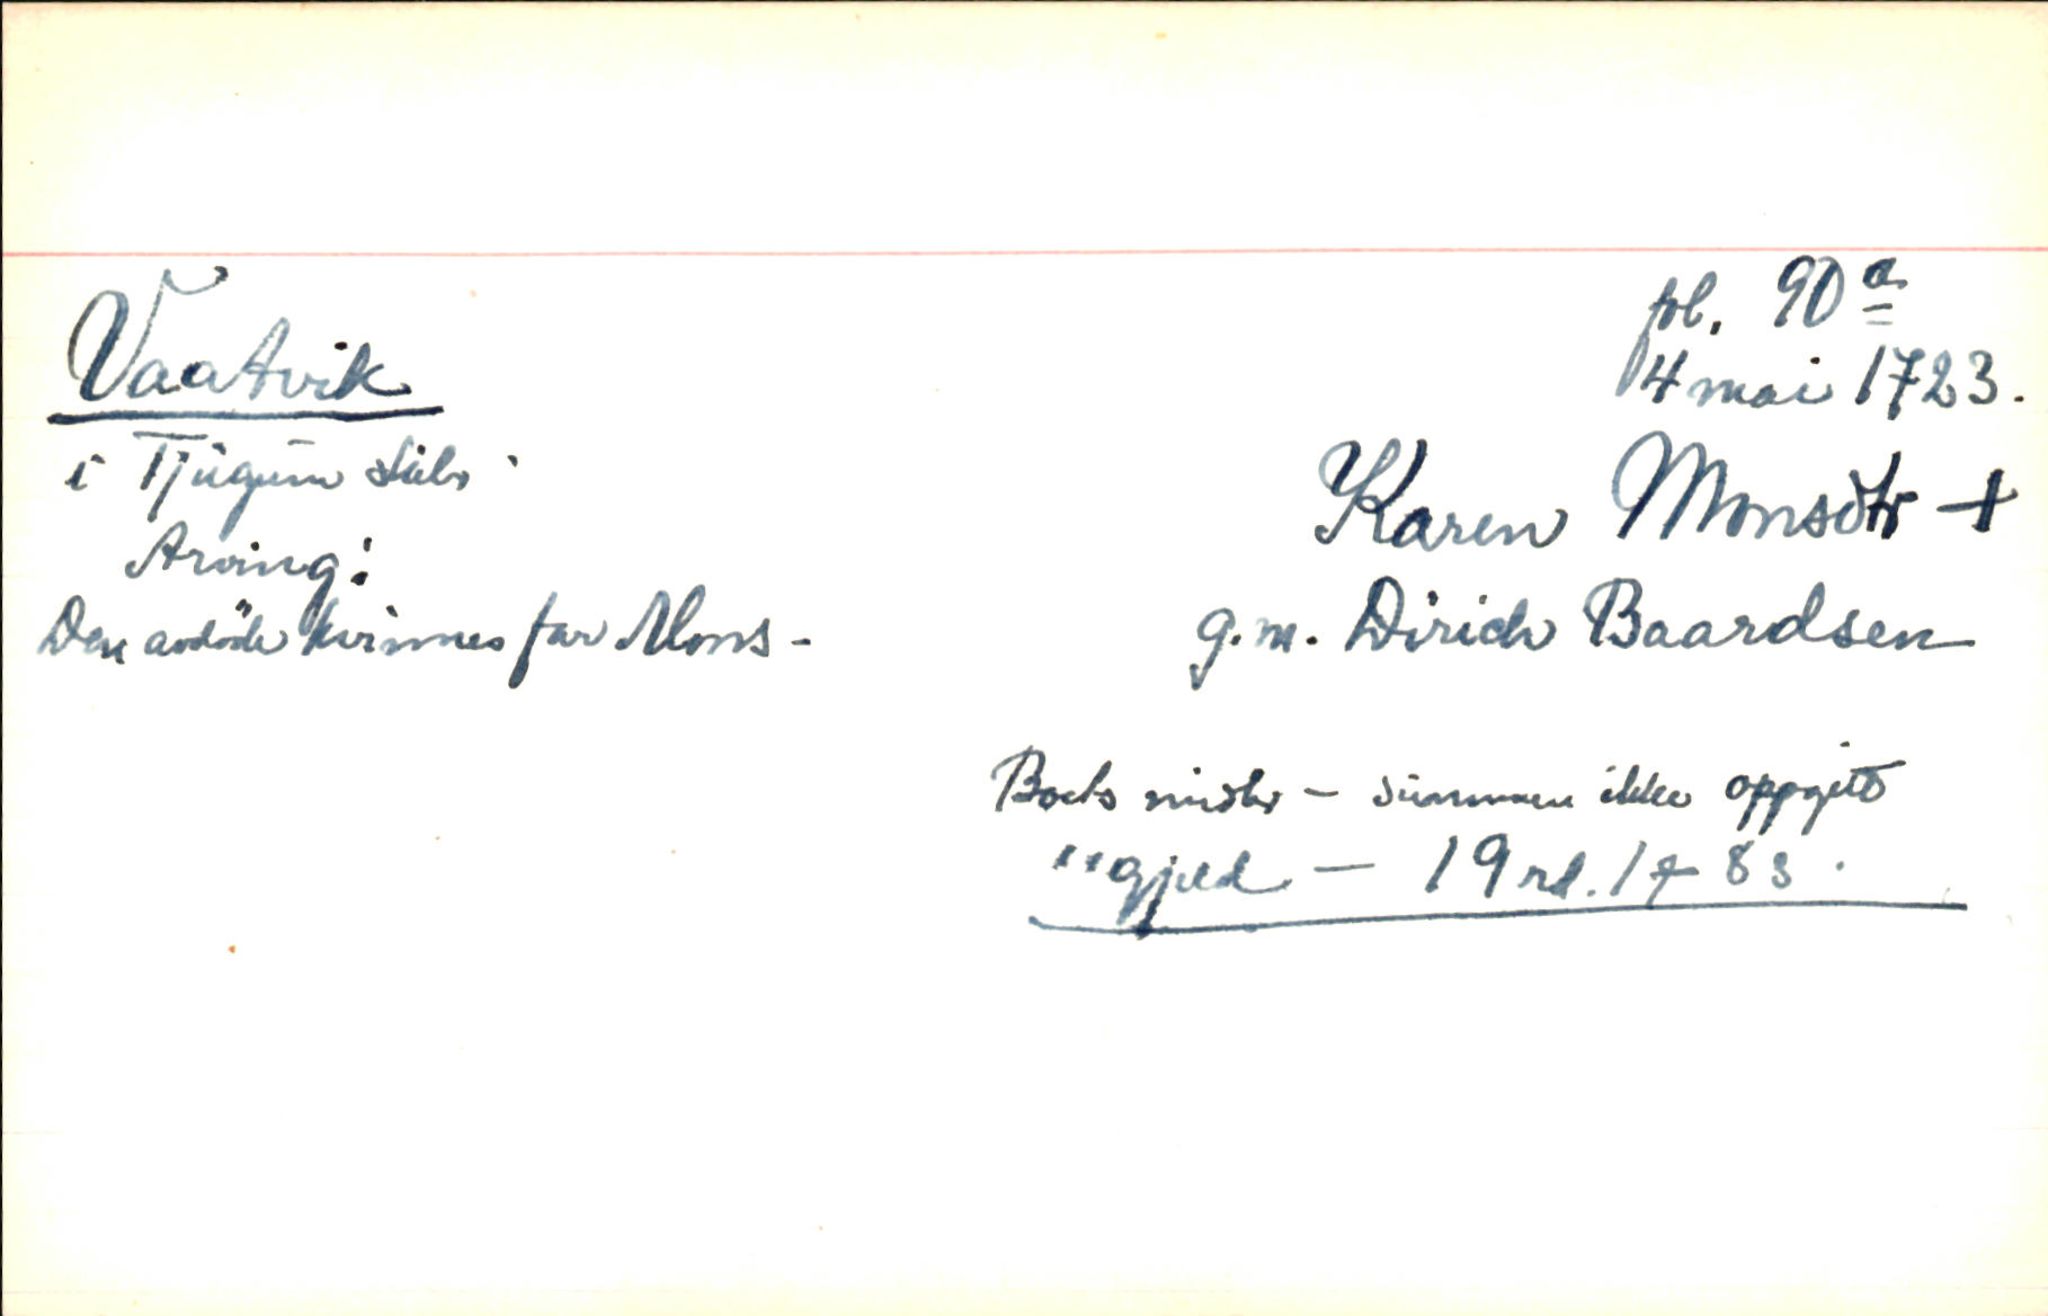 Vaatvik
i Tjugum skibr.
Arving:
Den avdöde kvinnes far Mons -
fol. 90a
4 mai 1723.
Karen Monsdtr +
g.m. Dirich Baardsen
Boets midler - summen ikke oppgitt
" " gjeld - 19 rd. 1 8 s.